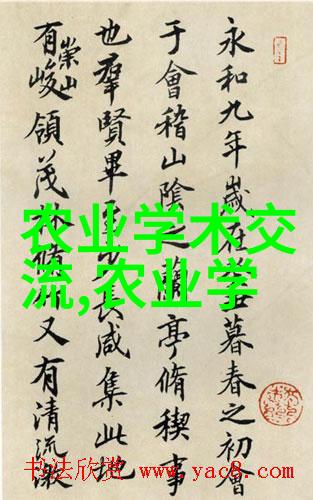 永和九年歲在暮春之初會
于會稽山陰之蘭亭脩稧事
也羣賢畢至少長咸集此地
有崇山峻領茂林脩竹又有清流激
农业学术交
流,农业学
书法欣赏 www.yac8.com